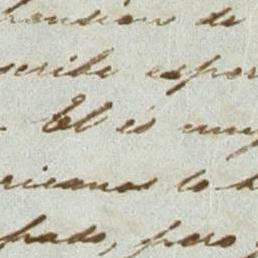 hension de
scribe espor
El es muy
ricanos lo h
pado, pero